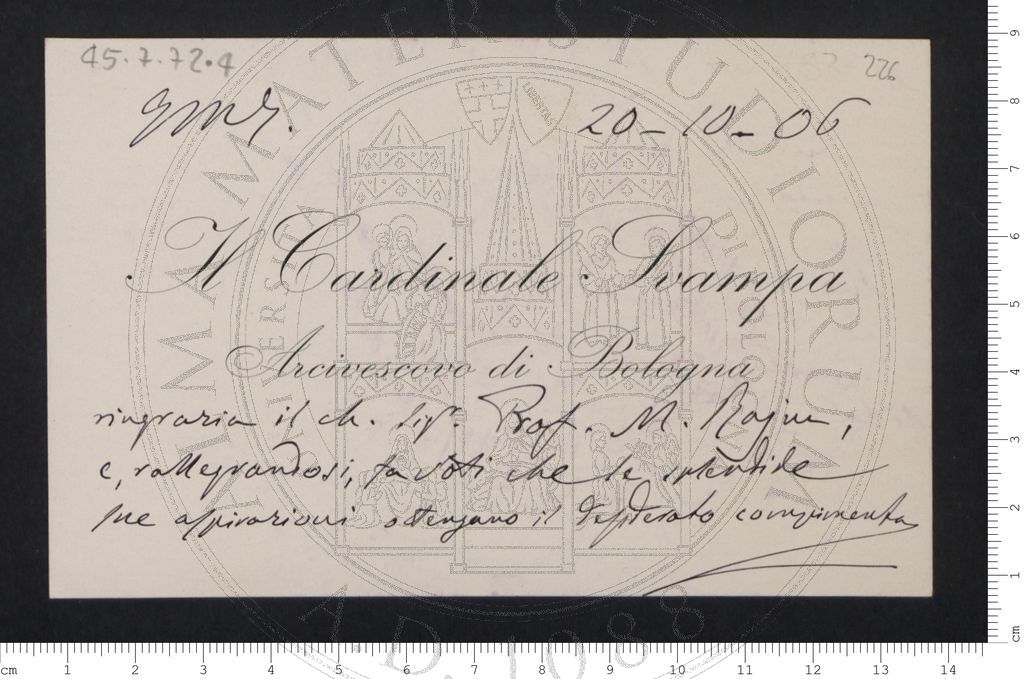 45.7.72.4
226
20-10-06
Il Cardinale Svampa
Arcivescovo di Bologna
ringrazia il ch. Sigr. Prof. M. Rajna,
e, rallegrandosi, fa voti che le splendide
sue aspirazioni ottengano il desiderato compimento
ALMA MATER STUDIORUM
A.D. 1088
LIBERTAS
cm 1 2 3 4 5 6 7 8 9 10 11 12 13 14
9
8
7
6
5
4
3
2
1
cm